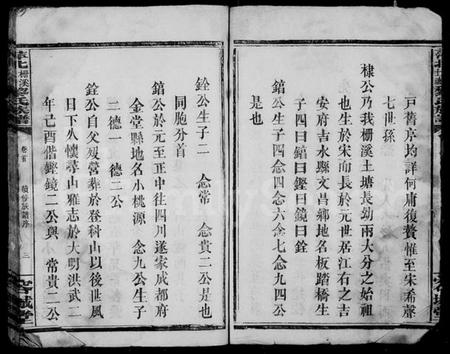 戸舊序均詳何庸復贅惟至宋希聲
七世孫
棣公乃我柵溪土塘長幼兩大分之始祖
也生於宋而長於元世居江右之吉
安府吉水縣文昌鄉地名板踏橋生
子四曰錧曰鏗曰鏡曰銓
錧公生子四念四念六念七念九四公
是也
銓公生子二 念常 念貴二公是也
同胞分首
錧公於元至正中往四川遂家成都府
金堂縣地名小桃源 念九公生子
二德一 德二公
銓公自父歿營葬於登科山以後世風
日下人懷尋山雅志於大明洪武二
年己酉偕鏗鏡二公與 常貴二公
柵溪
氏
卷首